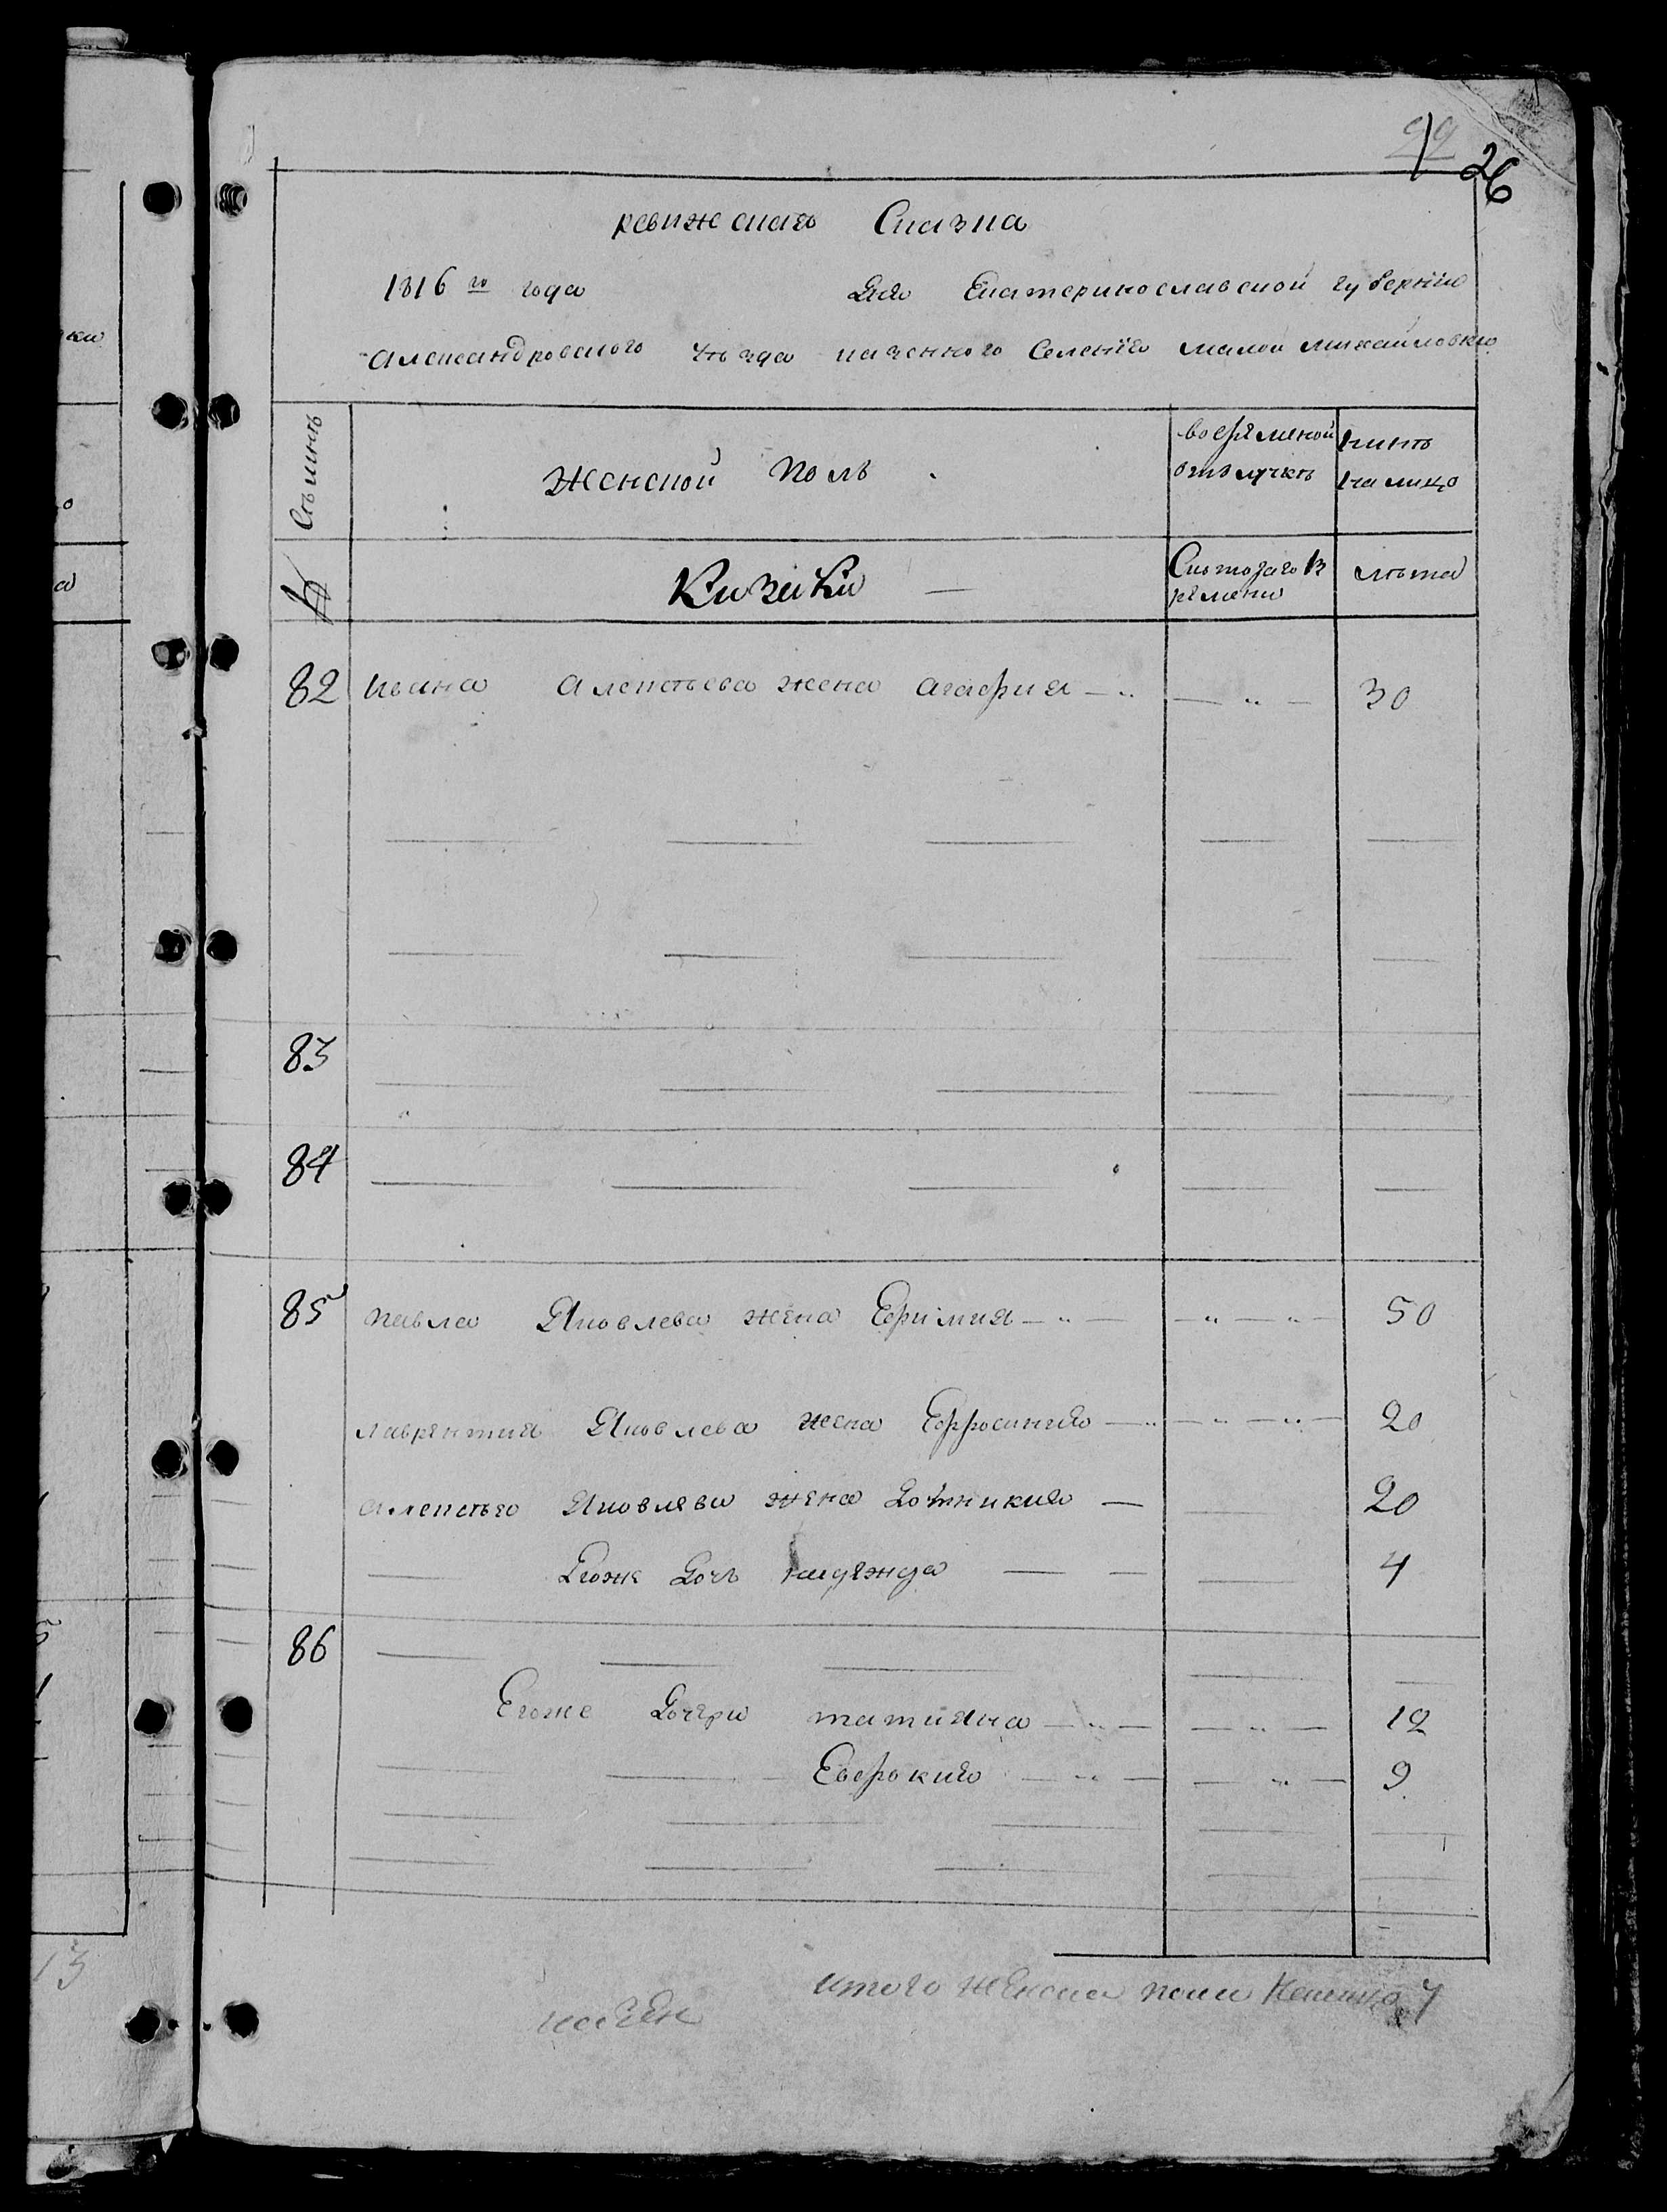 26
ревижская Сказка
1816 го года Для Екатеринославской губернии
Александровского уезда казенного Селения малой михайловки
женской полъ
вовременной отлучкѣ
нынѣ налицо
Скотораго времени
лѣта
82 Ивана Алексѣева жена агафия 30
83
84
85 павла Яковлева жена Ефимия 50
лаврентия Яковлева жена Ефросиния 20
алексѣя Яковлева жена Домникия 20
Егоже Дочь надежда 4
86
Егоже Дочери татияна 12
Евфокия 9
итого женска пола налицо 7